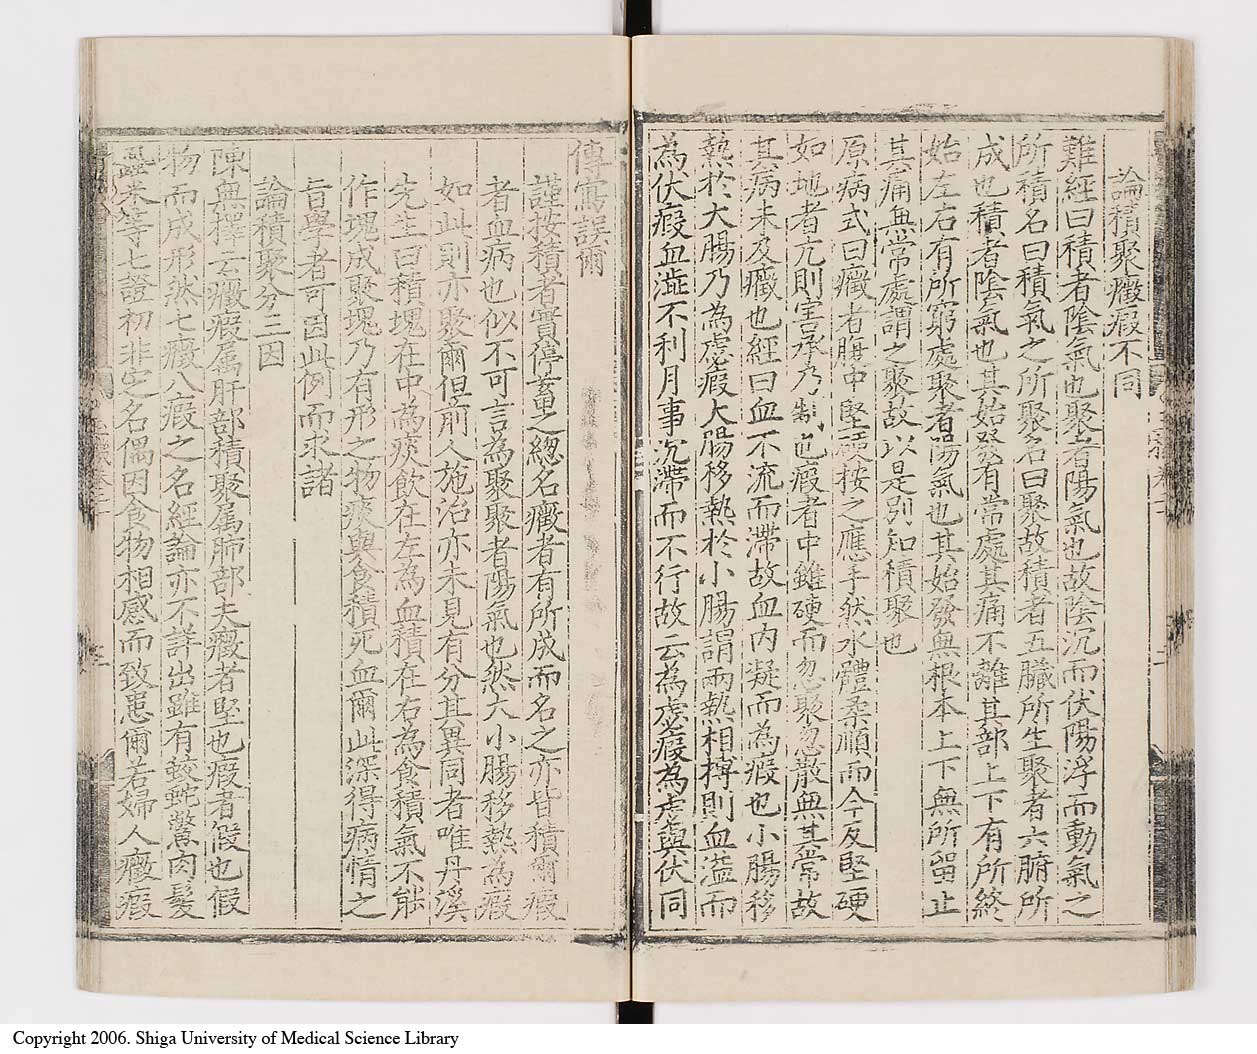 論積聚癥瘕不同
難經曰積者陰氣也聚者陽氣也故陰沉而伏陽浮而動氣之
所積名曰積氣之所聚名曰聚故積者五臟所生聚者六腑所
成也積者陰氣也其始發有常處其痛不離其部上下有所終
始左右有所窮處聚者陽氣也其始發無根本上下無所留止
其痛無常處謂之聚故以是別知積聚也
原病式曰癥者腹中堅硬按之應手然水體柔順而今反堅硬
如地者亢則害承乃制也瘕者中雖硬而忽聚忽散無其常故
其病未及癥也經曰血不流而滯故血內凝而為瘕也小腸移
熱於大腸乃為虙瘕大腸移熱於小腸謂兩熱相摶則血溢而
為伏瘕血澁不利月事沉滯而不行故云為虙瘕為虙與伏同
傳寫誤爾
謹按積者實停蓄之緫名癥者有所成而名之亦皆積爾瘕
者血病也似不可言為聚聚者陽氣也然大小腸移熱為瘕
如此則亦聚爾但前人施治亦未見有分其異同者唯丹溪
先生曰積塊在中為痰飲在左為血積在右為食積氣不能
作塊成聚塊乃有形之物痰與食積死血爾此深得病情之
旨學者可因此例而求諸
論積聚分三因
陳無擇云癥瘕属肝部積聚属肺部夫癥者堅也瘕者假也假
物而成形然七癥八瘕之名經論亦不詳出雖有蛟蛇鱉肉髮
虱米等七證初非定名偶因食物相感而致患爾若婦人癥瘕
Copyright 2006. Shiga University of Medical Science Library